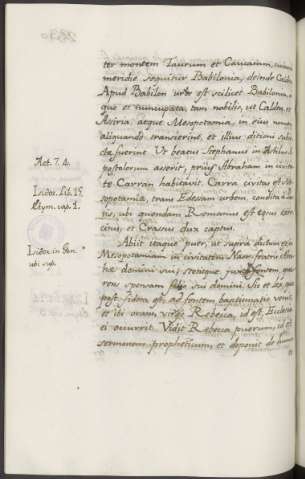 ter montem Taurum et Caucasum, cuius
meridie sequitur Babilonia, deinde Caldea
Apud Babilen urbs est scilicet Babilonia,
que et nuncupata, tam nobilis, ut Caldea, et
Asiria, aeque Mesopotamia, in eius nomen
aliquando transierint, et illius ditioni subie
cta fuerint. Ut beatus Stephanus in Actibus A
postolorum asserit, prius Abraham in civita
te Carran habitavit. Carra civitas est Me
sopotamia, trans Edessam urbem, condita a
ubi quondam Romanus est exer
citus, et Crassus dux captus.
Abiit itaque puer, ut supra dictum
Mesopotamiam in civitatem Nam fratris Abra
he domini sui, stetitque juxta fontem, que
rens sponsam filio sui domini. Sic et
post fidera est, ad fontem baptismatis venit,
et ibi oravit virgo Rebecca, id est, Ecclesia
ei occurrit. Vidit Rebecca puerum, id est
sermonem propheticum, et deponit de
Act. 7. 4.
Isidor. lib. 15
Etym. cap. 1.
Isidor. in Gen.
ubi sup.